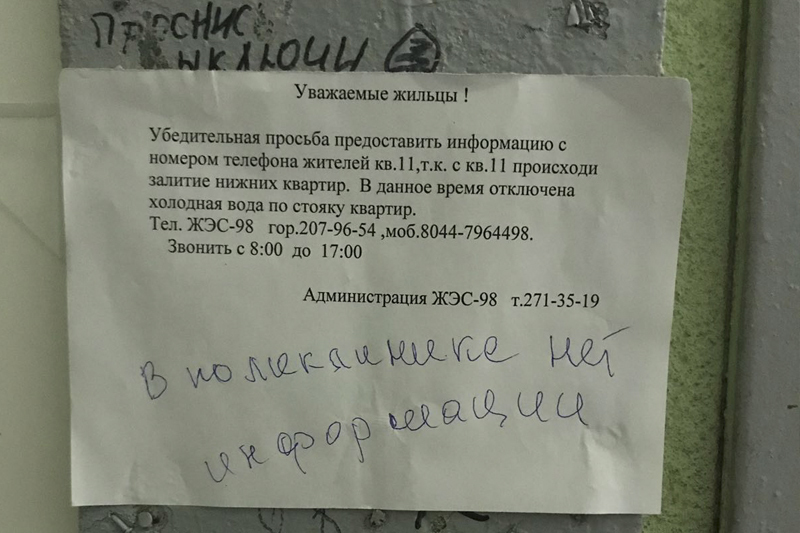 ПРОСНИС
ЫКЛЮЧИ
Уважаемые жильцы !
Убедительная просьба предоставить информацию с
номером телефона жителей кв.11,т.к. с кв.11 происходи
залитие нижних квартир. В данное время отключена
холодная вода по стояку квартир.
Тел. ЖЭС-98 гор.207-96-54 ,моб.8044-7964498.
Звонить с 8:00 до 17:00
Администрация ЖЭС-98 т.271-35-19
в поликлинике нет
информации